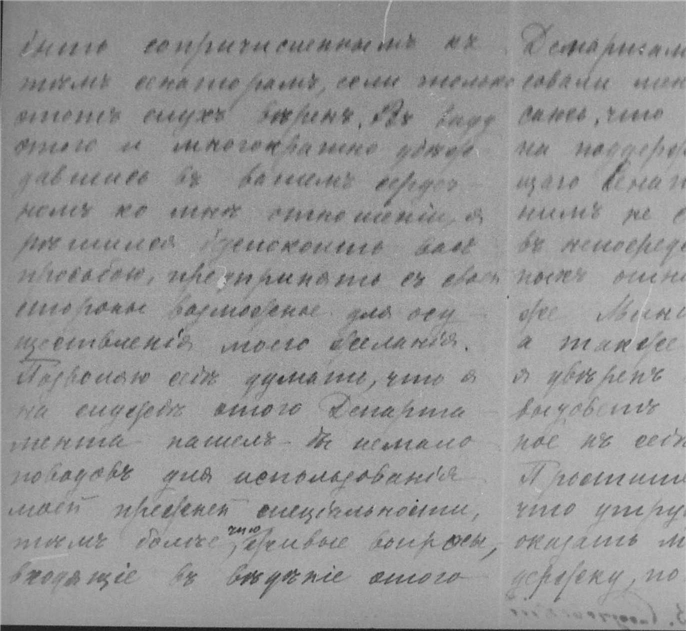 быть сопричисленнымъ къ
тѣмъ сенаторамъ, если только
этотъ слухъ вѣренъ. Въ виду
этого и многократно убѣж-
давшись въ вашемъ сердеч-
номъ ко мнѣ отношеніи, я
рѣшился безпокоить васъ
просьбою, предпринять съ своей
стороны возможное для осу-
ществленія моего желанія.
Позволяю себѣ думать, что я
на службѣ этого Департа-
мента нашелъ бы немало
поводовъ для использованія
моей прежней спеціальности,
тѣмъ болѣе, что вопросы,
входящіе въ вѣдѣніе этого
Департам
совали мен
саюсь, что
на поддерж
щаго Сенат
нимъ не с
въ непосред
ныхъ отно
же Мини
а также
я увѣрен
вызоветъ
ное къ себѣ
Простите
что утру
оказать м
держку, по